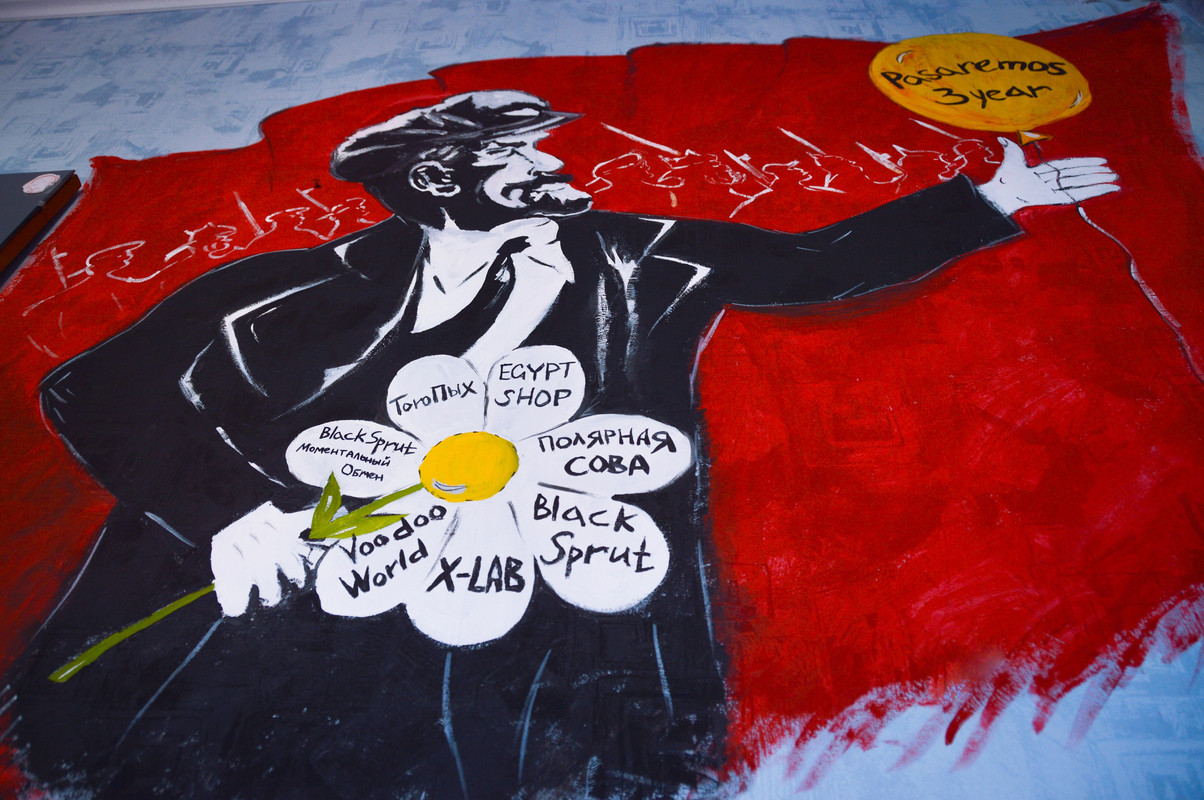 Pasaremos
3 year
ТогоПых
EGYPT
SHOP
Black Sprut
Моментальный
Обмен
ПОЛЯРНАЯ
СОВА
Voodoo
World
X-LAB
Black
Sprut